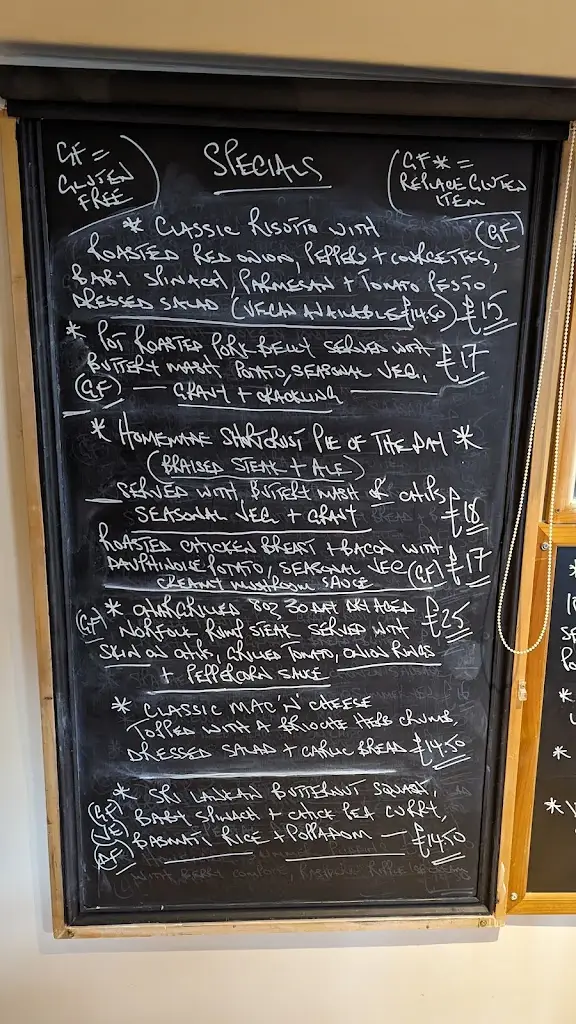 GF =
GLUTEN
FREE
SPECIALS
GF * =
REPLACE GLUTEN
ITEM
* CLASSIC RISOTTO WITH (GF)
ROASTED RED ONION, PEPPERS + COURGETTES,
BABY SPINACH, PARMESAN + TOMATO PESTO
DRESSED SALAD (VEGAN AVAILABLE £14.50) £15
* POT ROASTED PORK BELLY SERVED WITH £17
BUTTERY MASH POTATO, SEASONAL VEG,
(GF) — GRAVY + CRACKLING —
* HOMEMADE SHORTCRUST PIE OF THE DAY *
(BRAISED STEAK + ALE)
SERVED WITH BUTTERY MASH OR CHIPS
SEASONAL VEG + GRAVY £18
ROASTED CHICKEN BREAST + BACON WITH
DAUPHINOISE POTATO, SEASONAL VEG (GF) £17
CREAMY MUSHROOM SAUCE
(GF) * CHARGRILLED 8OZ 30 DAY DRY AGED £25
NORFOLK RUMP STEAK SERVED WITH
SKIN ON CHIPS, GRILLED TOMATO, ONION RINGS
+ PEPPERCORN SAUCE
* CLASSIC MAC 'N' CHEESE
TOPPED WITH A BRIOCHE HERB CRUMB,
DRESSED SALAD + GARLIC BREAD £14.50
* SRI LANKAN BUTTERNUT SQUASH,
(GF) BABY SPINACH + CHICK PEA CURRY,
(VE)
(DF) BASMATI RICE + POPPADOM — £14.50
WITH BERRY COMPOTE,